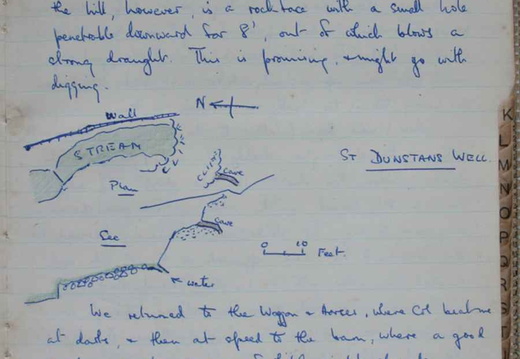 the hill, however, is a rock face with a small hole
penetrable downward for 8', out of which blows a
strong draught. This is promising, & might go with
digging.
Wall
N
STREAM
ST DUNSTANS WELL.
Cave
Plan
Cave
Sec
0 10 Feet.
water
We returned to the Waggon & Horses, where Col became
at darts, & then at speed to the barn, where a good
K
L
M
N
O
P
Q
R
S